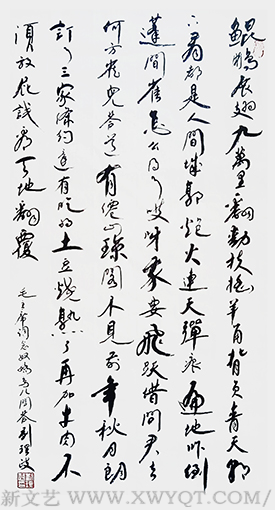 鲲鹏展翅九万里翻动扶摇羊角背负青天朝
下看都是人间城郭炮火连天弹痕遍地吓倒
蓬间雀怎么得了哎呀我要飞跃借问君去
何方雀儿答道有仙山琼阁不见前年秋月朗
订了三家条约还有吃的土豆烧熟了再加牛肉不
须放屁试看天地翻覆
毛主席词念奴娇鸟儿问答
新文艺 WWW.XWYQT.COM